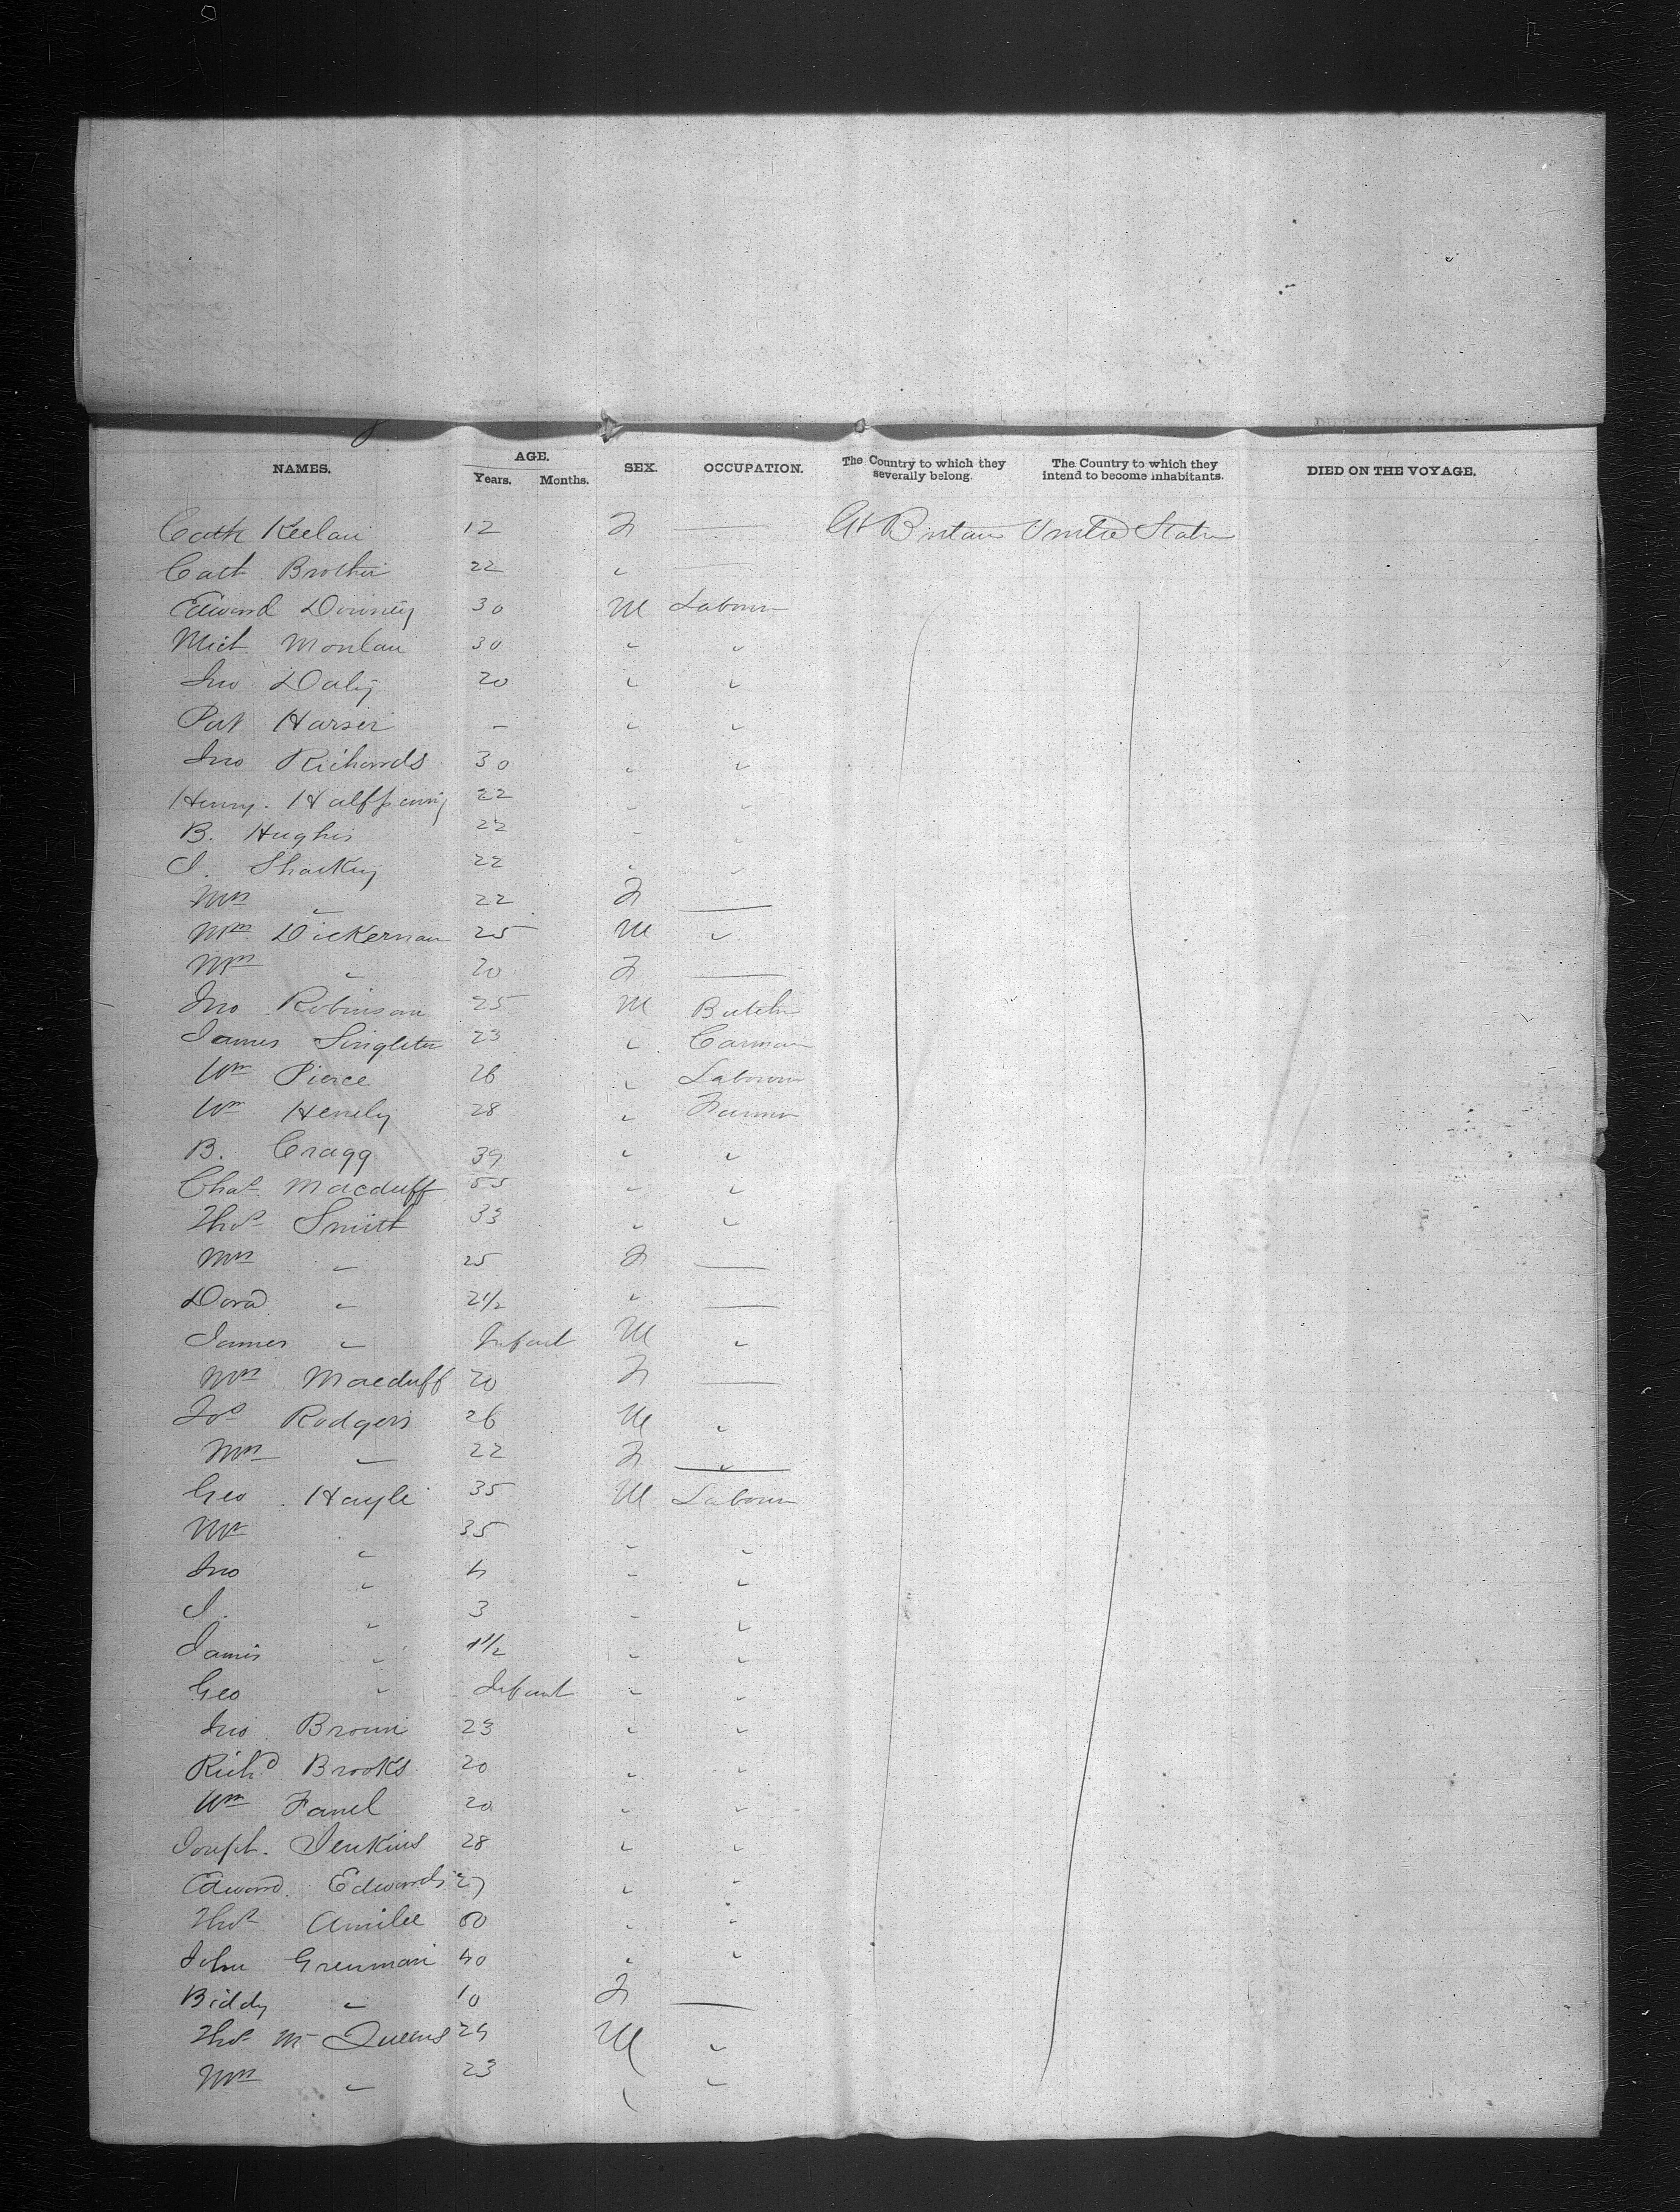 NAMES. AGE. Years. Months. SEX. OCCUPATION. The Country to which they severally belong. The Country to which they intend to become inhabitants. DIED ON THE VOYAGE.
Cath Keelan 12 F — Gt Britain United States
Cath Brother 22 " —
Edward Downey 30 M Labourer
Mich Monlan 30 " "
Jno Daly 20 " "
Pat Harser — " "
Jno Richards 30 " "
Henry Halfpenny 22 " "
B. Hughes 22 " "
J. Sharkey 22 " "
Mrs " 22 F —
Wm Dickernan 25 M "
Mrs " 20 F —
Jno Robinson 25 M Butcher
James Singleton 23 " Carman
Wm Pierce 26 " Labourer
Wm Henely 28 " Farmer
B. Cragg 39 " "
Chas Macduff 55 " "
Thos Smith 33 " "
Mrs " 25 F —
Dora " 2 1/2 " —
James " Infant M "
Mrs Macduff 20 F —
Jos Rodgers 26 M "
Mrs " 22 F —
Geo Hayle 35 M Labourer
Mrs " 35 " "
Jno " 4 " "
J. " 3 " "
James " 1 1/2 " "
Geo " Infant " "
Jno Brown 23 " "
Richd Brooks 20 " "
Wm Fanel 20 " "
Joseph Jenkins 28 " "
Edward Edwards 27 " "
Thos 60 " "
John Grenman 40 " "
Biddy " 10 F —
Thos Mc Queens 24 M "
Mrs " 23 " "